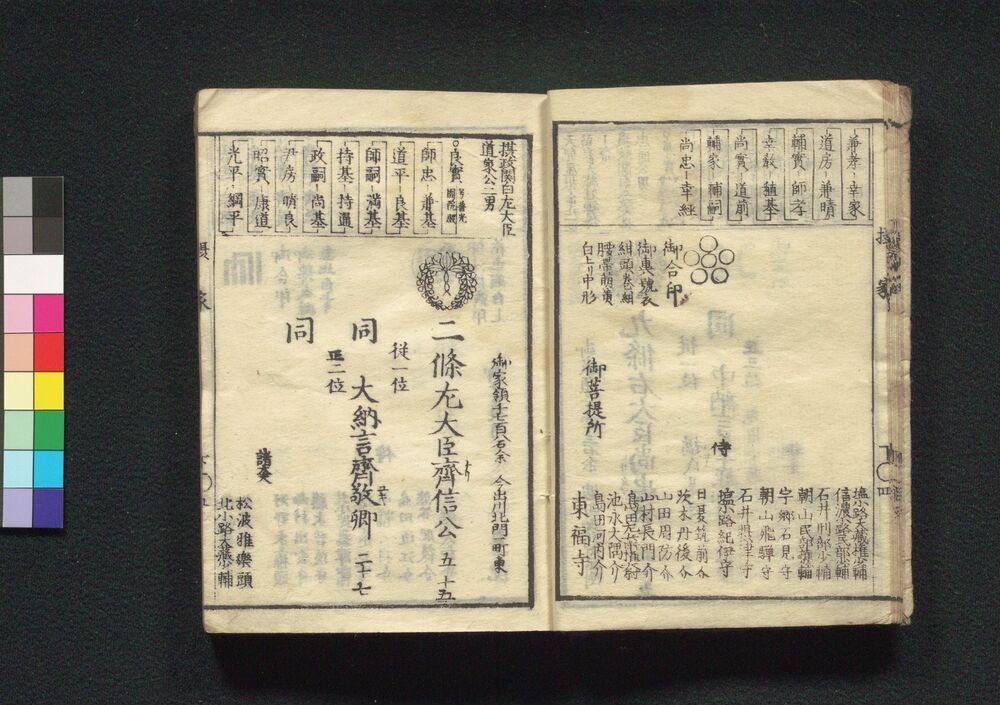 兼孝 幸家
道房 兼晴
輔實 師孝
幸教 稙基
尚實 道前
輔家 輔嗣
尚忠 幸經
御合印
御輿號衣
紺頭巻紐
腰黒萠黄
白上リ中形
侍
塩小路大蔵権少輔
信濃小路民部少輔
石井刑部少輔
朝山民部権少輔
宇郷石見守
朝山飛騨守
石井
塩小路紀伊守
日夏筑前介
茨木丹後介
山田周防介
山村長門介
島田左兵衛権尉
池水大隅介
島田河内介
御菩提所
東福寺
摂家
四
摂政関白左大臣
道家公二男
良實 号普光園院殿
師忠 兼基
道平 良基
師嗣 満基
持基 持通
政嗣 尚基
尹房 晴良
昭實 康道
光平 綱平
御家領千七百八石余 今出川北門一町東
二條左大臣齊信公 五十五
従一位
同 大納言齊敬卿 二十七
正二位
同
諸大夫
松波雅樂頭
北小路大蔵少輔
摂家
五